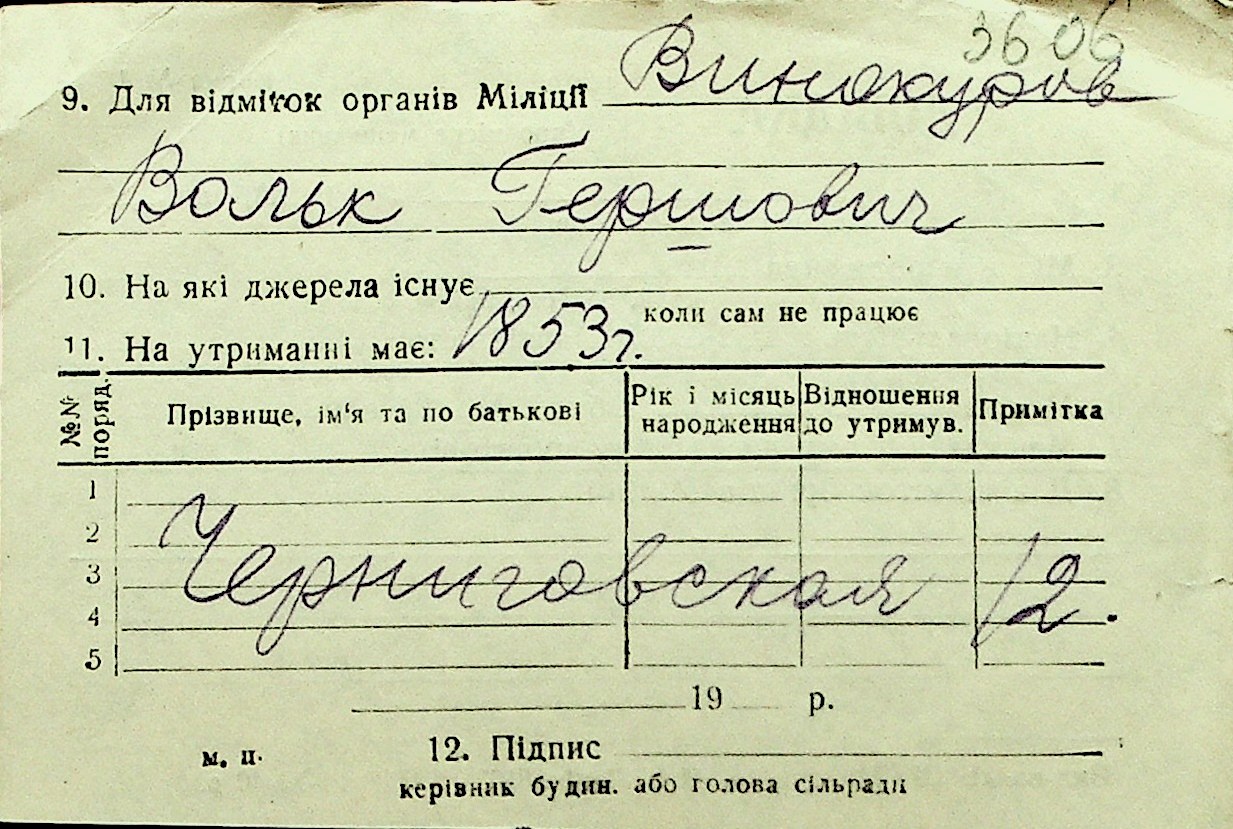 3606
9. Для відміток органів Міліції Винокуров
Вольк Гершович
10. На які джерела існує
коли сам не працює
11. На утриманні має: 1853 г.
№№ поряд. Прізвище, ім‘я та по батькові Рік і місяць народження Відношення до утримув. Примітка
1
2
3
4
5
Черниговская 12.
19 р.
м. п. 12. Підпис
керівник будин. або голова сільради